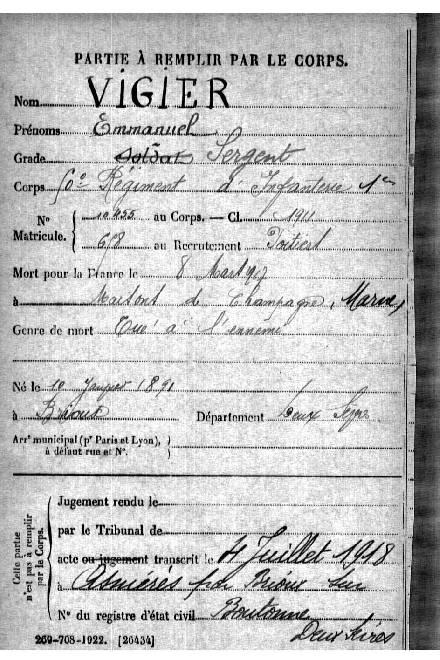 PARTIE À REMPLIR PAR LE CORPS.
Nom VIGIER
Prénoms Emmanuel
Grade Soldat Sergent
Corps 60e Régiment d'Infanterie
No 10255 au Corps. — Cl. 1911
Matricule. 618 au Recrutement Poitiers
Mort pour la France le 8 Mars 1917
à de Champagne, Marne
Genre de mort Tué à l'ennemi
Né le 10 1891
à Brioux Département Deux Sèvres
Arrt municipal (pr Paris et Lyon),
à défaut rue et No.
Cette partie n'est pas à remplir par le Corps.
Jugement rendu le
par le Tribunal de
acte ou jugement transcrit le 4 Juillet 1918
à Asnières par Brioux sur
No du registre d'état civil Boutonne
Deux Sèvres
269-708-1922. [26434]